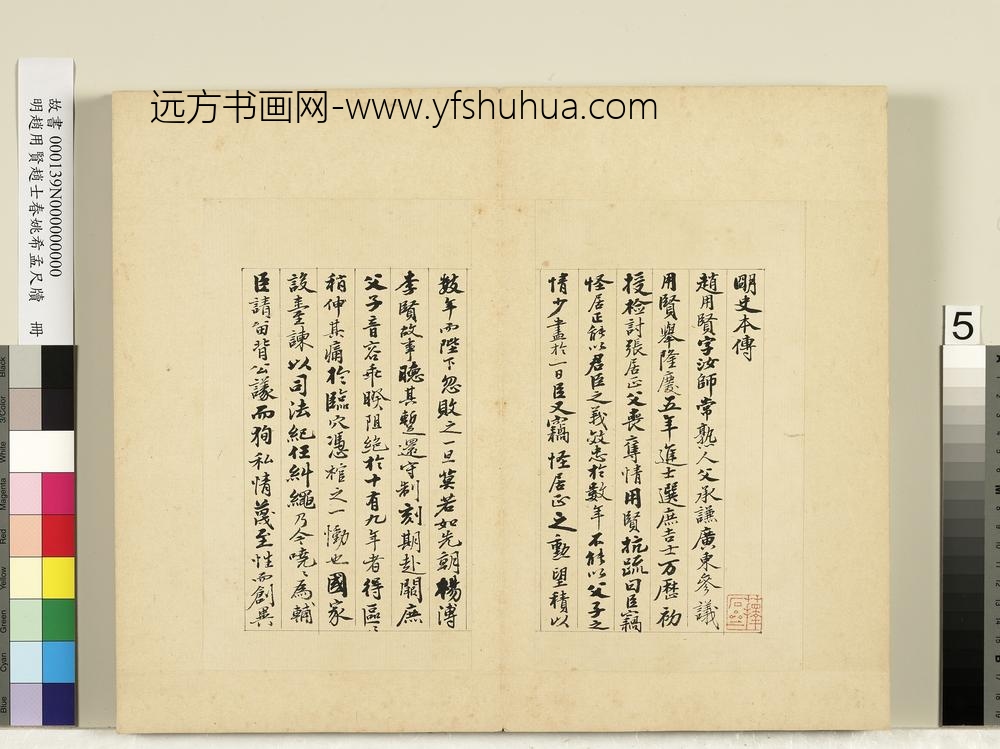 远方书画网-www.yfshuhua.com
故書 000139N000000000
明趙用賢趙士春姚希孟尺牘 冊
5
明史本傳
趙用賢字汝師常熟人父承謙廣東參議
用賢舉隆慶五年進士選庶吉士万歷初
授檢討張居正父喪奪情用賢抗疏曰臣竊
怪居正能以君臣之義效忠於數年不能以父子之
情少盡於一日臣又竊怪居正之勳望積以
數年而陛下忽敗之一旦莫若如先朝楊溥
李賢故事聽其暫還守制刻期赴闕庶
父子音容乖睽阻絶於十有九年者得區〻
稍伸其痛於臨穴憑棺之一慟也國家
設臺諫以司法紀任糾繩乃今嘵〻為輔
臣請留背公議而狥私情蔑至性而創異
Black
3/Color
White
Magenta
Red
Yellow
Green
Cyan
Blue